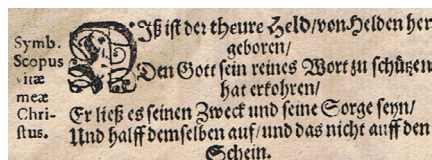 Symb.
Scopus
vitæ
meæ
Chri-
stus.
DIß ist der theure Held/von Helden her
geboren/
Den Gott sein reines Wort zu schützen
hat erkohren/
Er ließ es seinen Zweck und seine Sorge seyn/
Und halff demselben auf/und das nicht auff den
Schein.